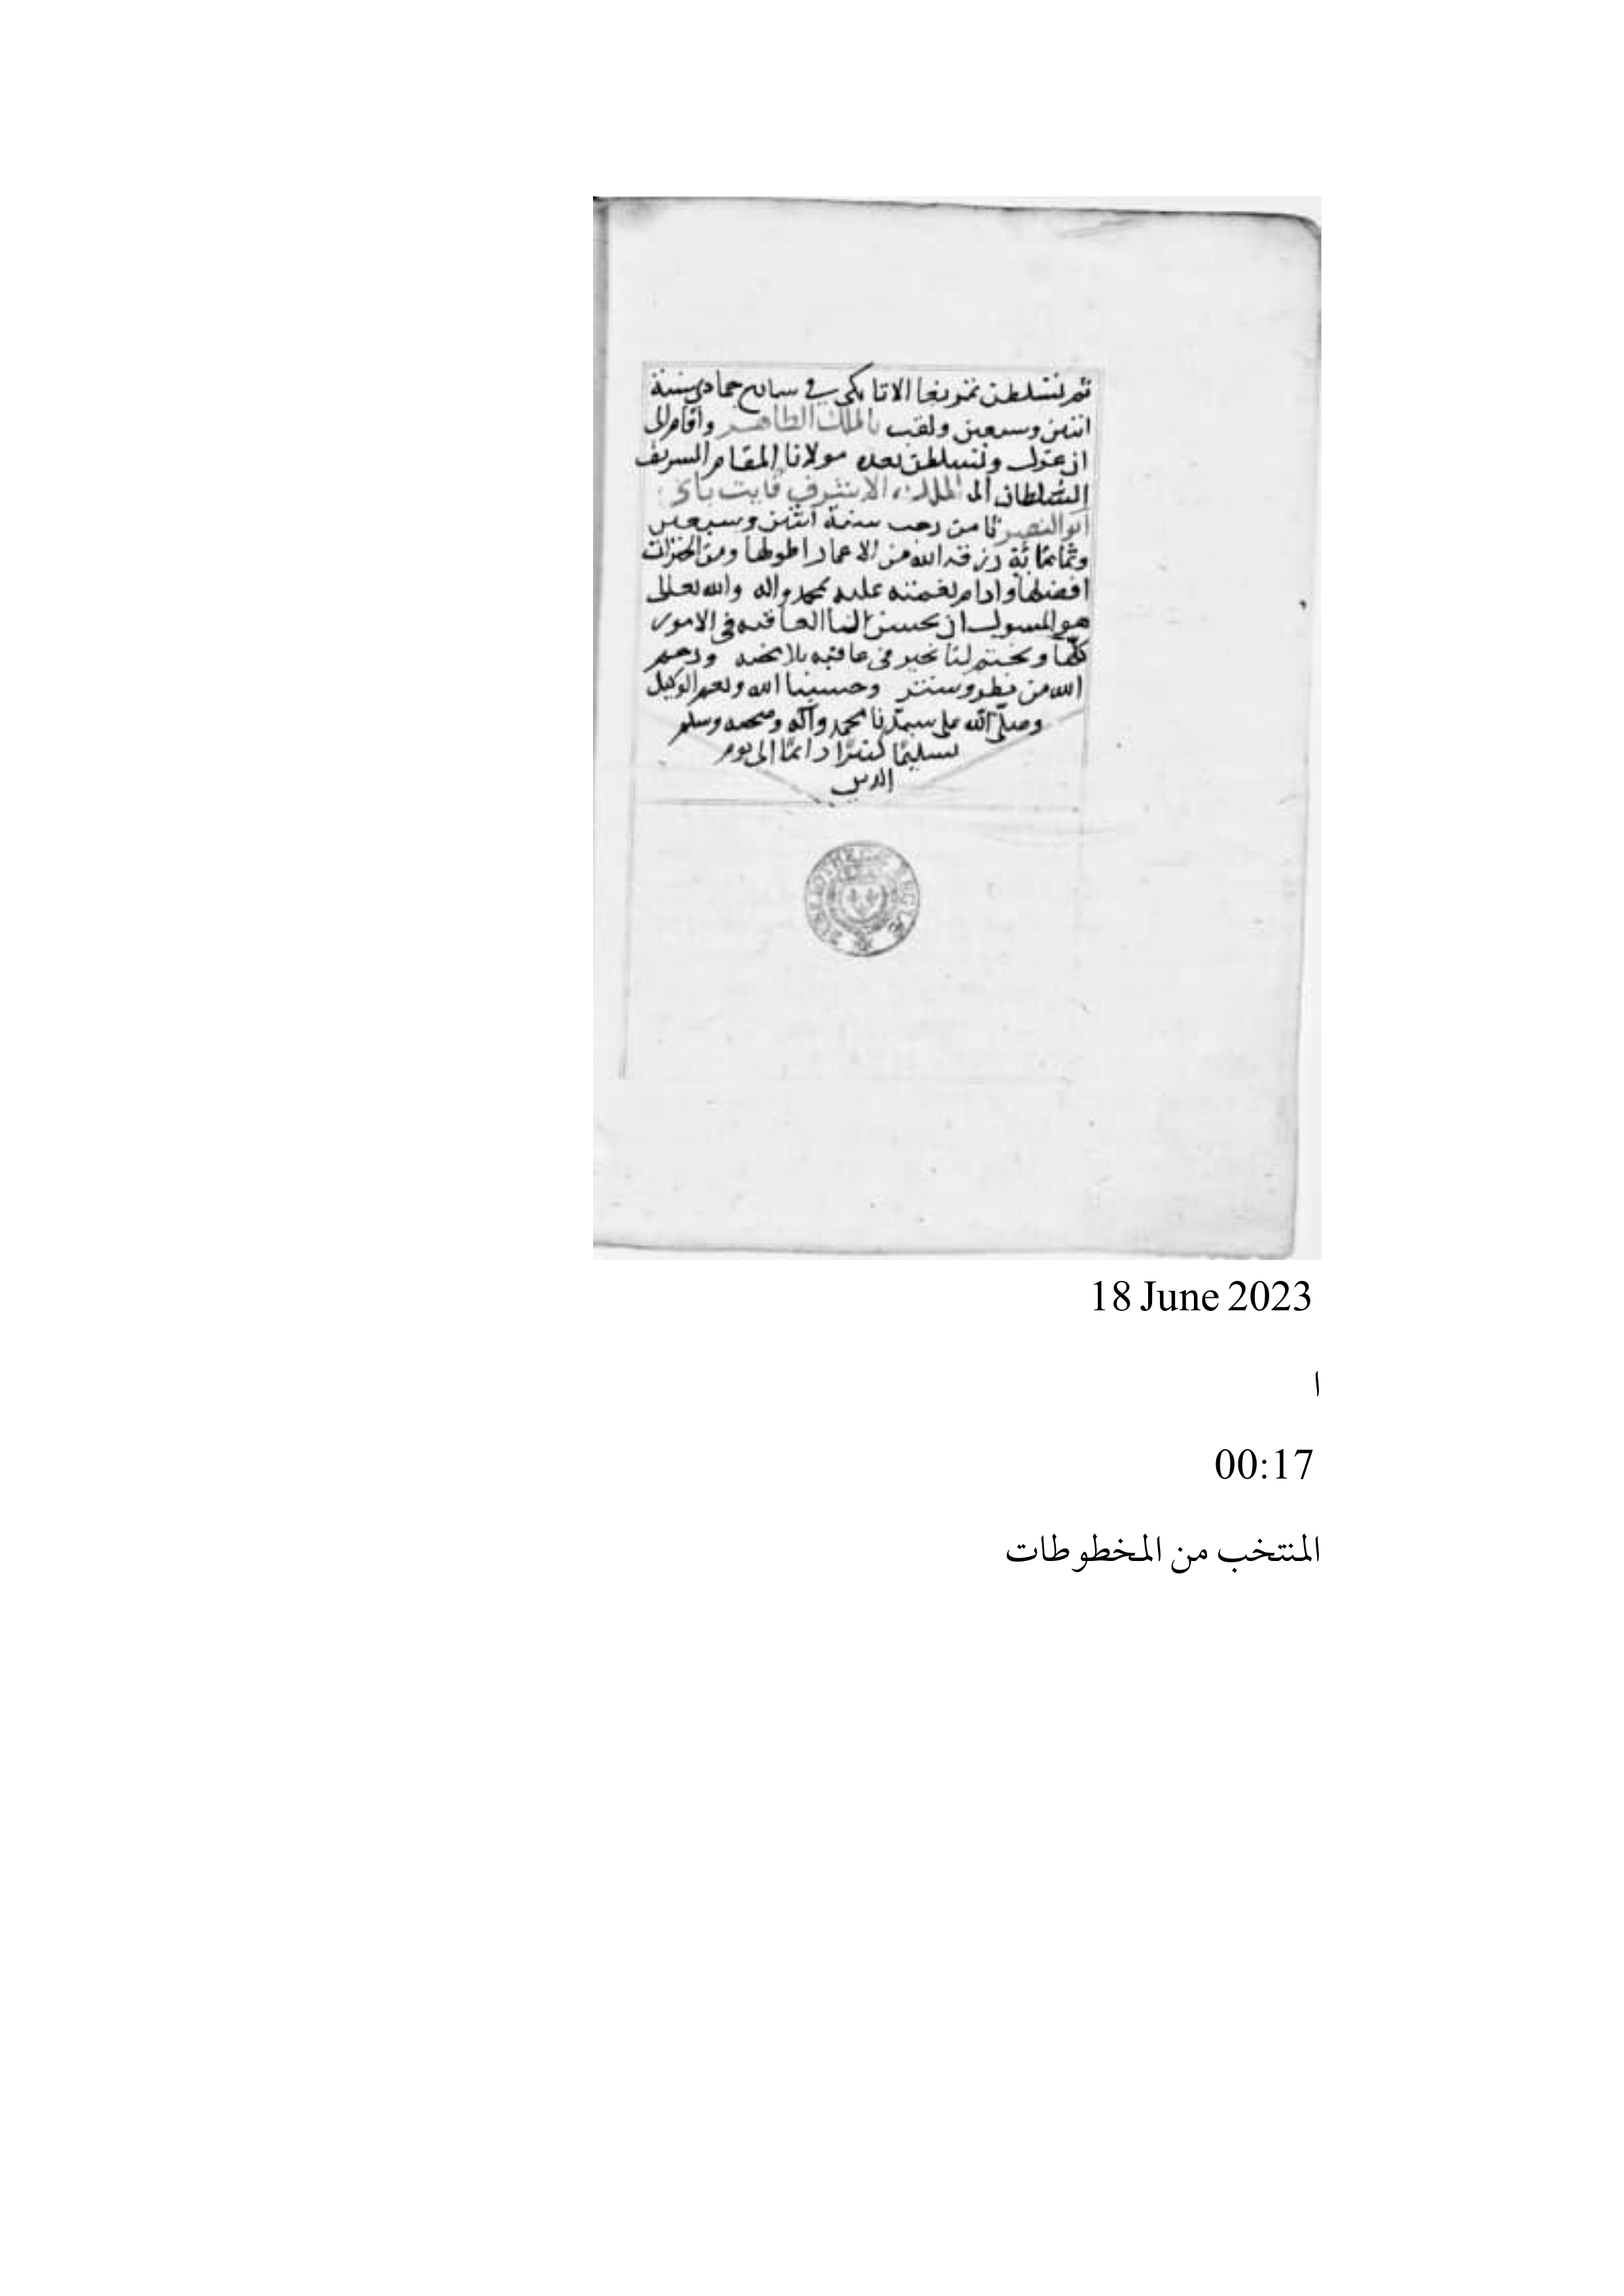 ثم تسلطن تمربغا الاتابكي في سابع جمادي سنة
اثنين وسبعين ولقب بالملك الظاهر واقام الى
ان عزل وتسلطن بعده مولانا المقام الشريف
السلطان الملك الاشرف قايت باي
ابو النصر ثامن رجب سنة اثنين وسبعين
وثمانمائة رزقه الله من الاعمار اطولها ومن الخيرات
افضلها وادام نعمته عليه بمحمد واله والله تعالى
هو المسول ان يحسن لنا العاقبه في الامور
كلها ويختم لنا بخير في عافيه بلا محنه ورحم
الله من نظر وستر وحسبنا الله ونعم الوكيل
وصلى الله على سيدنا محمد وآله وصحبه وسلم
تسليمًا كثيرًا دائمًا الى يوم
الدين
18 June 2023
ا
00:17
المنتخب من المخطوطات